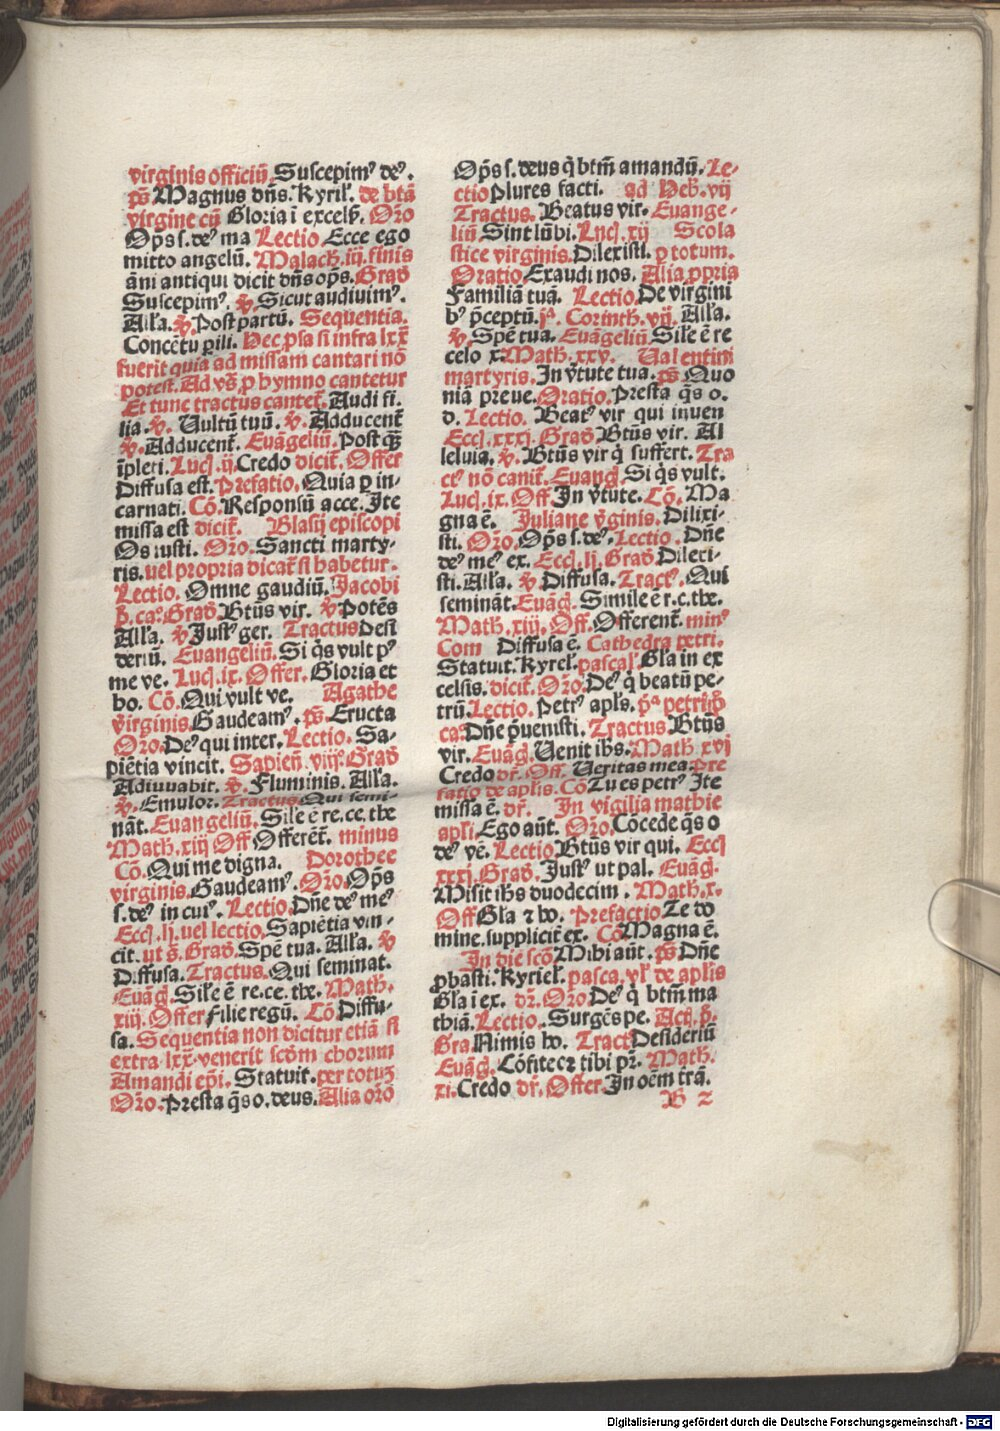 virginis officiū. Suscepimꝰ deꝰ.
p̄s Magnus dn̄s. Kyriel̕. de btā
virgine cū Gloria ī excels̕. Or̄o
Op̄s s. deꝰ ma Lectio Ecce ego
mitto angelū. Malach. iij. finis
āni antiqui dicit dn̄s op̄s. Grad̕
Suscepimꝰ. ℣. Sicut audiuimꝰ.
All̕a. ℣. Post partū. Sequentia.
Concētu ꝑili. Hec ꝓsa si infra lxx̄
fuerit quia ad missam cantari nō
potest. Ad vs̄ ꝓ hymno cantetur
Et tunc tractus cantet̄. Audi fi-
lia. ℣. Uultū tuū. ℣. Adducent̄
℣. Adducent̄. Euāgeliū. Postq̄ꝫ
īpleti. Luc̄. ij. Credo dicit̄. Offer
Diffusa est. Prefatio. Quia ꝑ in-
carnati. Cō. Responsū acce. Ite
missa est dicit̄. Blasij episcopi
Os iusti. Or̄o. Sancti marty-
ris. vel propria dicat̄ si habetur.
Lectio. Omne gaudiū. Jacobi
p̄. caº. Grad̕ Bt̄us vir. ℣ Potēs
All̕a. ℣ Justꝰ ger. Tractus Desi
deriū. Euangeliū. Si q̄s vult pꝰ
me ve. Luc̄. ix. Offer. Gloria et
ho. Cō. Qui vult ve. Agathe
v̄ginis. Gaudeamꝰ. p̄s. Eructa
Or̄o. Deꝰ qui inter. Lectio. Sa-
piētia vincit. Sapien̄. viij. Grad̕
Adiuuabit. ℣. Fluminis. All̕a.
℣. Emulor. Tractus Qui semi-
nāt. Euangeliū. Sil̕e ē re. ce. the
Math. xiij Off Offerēt̄. minus
Cō. Qui me digna. Dorothee
virginis. Gaudeamꝰ. Or̄o. Op̄s
s. deꝰ in cuiꝰ. Lectio. Dn̄e deꝰ meꝰ
Eccl̄. lj. vel lectio. Sapiētia vin-
cit. ut s̄. Grad̕. Spē tua. All̕a. ℣
Diffusa. Tractus. Qui seminat.
Euāg̕. Sil̕e ē re. ce. the. Math.
xiij. Offer Filie regū. Cō Diffu-
sa. Sequentia non dicitur etiā si
extra lxx̄ venerit scd̄m chorum
Amandi ep̄i. Statuit. per totuꝫ
Or̄o. Presta q̄s o. deus. Alia or̄o
Op̄s s. deus q̄ btm̄ amandū. Le-
ctio Plures facti. ad Heb̕. vij
Tractus. Beatus vir. Euange-
liū Sint lūbi. Luc̄. xij Scola
stice virginis. Dilexisti. ꝑ totum.
Oratio Exaudi nos. Alia ꝓpria
Familiā tuā. Lectio. De virgini
bꝰ p̄ceptū. jª. Corinth. vij. All̕a.
℣. Spē tua. Euāgeliū. Sil̕e ē re
celo x. Math. xxv. Ualentini
martyris. In v̄tute tua. p̄s Quo
niā preue. Oratio. Presta q̄s o.
d. Lectio. Beatꝰ vir qui inuen
Eccl̄. xxxj. Grad̕ Bt̄us vir. Al
leluia. ℣. Bt̄us vir q̄ suffert. Tra
ctꝰ nō canit̄. Euang̕. Si q̄s vult.
Luc̄. ix. Off In v̄tute. Cō. Ma
gna ē. Juliane v̄ginis. Dilixi-
sti. Or̄o. Op̄s s. deꝰ. Lectio. Dn̄e
deꝰ meꝰ ex. Eccl̄. lj. Grad̕ Dilexi-
sti. All̕a. ℣ Diffusa. Tractꝰ. Qui
semināt. Euāg̕. Simile ē r. c. the.
Math. xiij. Off. Offerent̄. minꝰ
Com Diffusa ē. Cathedra petri.
Statuit. Kyrel̕. pascal̕. Gl̕a in ex
celsis. dicit̄. Or̄o. Deꝰ q̄ beatū pe-
trū. Lectio. Petrꝰ apl̕s. pª petri p̄
ca. Dn̄e p̄uenisti. Tractus Bt̄us
vir. Euāg̕. Uenit ih̄s. Math xvj
Credo dr̄. Off. Ueritas mea. Pre
fatio de aplis. Cō Tu es petrꝰ Ite
missa ē. dr̄. In vigilia mathie
apl̕i. Ego aūt. Or̄o. Cōcede q̄s o
deꝰ vē. Lectio Bt̄us vir qui. Eccl̄
xxxj. Grad̕. Justꝰ ut pal. Euāg̕.
Misit ih̄s duodecim. Math. x.
Off Gl̕a ⁊ ho. Prefactio Te do
mine. supplicit̄ ex. Cō Magna ē.
In die sc̄o Mihi aūt. p̄s Dn̄e
ꝓbasti. Kyriel̕. pasca. vl̕ de apl̕is
Gl̕a ī ex. dr̄. Or̄o Deꝰ q̄ btm̄ ma
thiā. Lectio. Surgēs pe. Act̄. p̄.
Gra Nimis ho. Tract Desideriū
Euāg̕. Cōfiteor tibi pr̄. Math.
xi. Credo dr̄. Offer. In oēm trā.
B 2
Digitalisierung gefördert durch die Deutsche Forschungsgemeinschaft - DFG